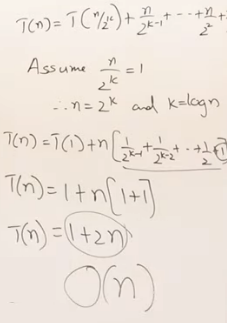 T(n)= T(n/2^k)+ n/2^{k-1} + --+ n/2^2 +
Assume n/2^k = 1
∴ n = 2^k and k=logn
T(n)=T(1)+n[1/2^{k-1} + 1/2^{k-2} + - + 1/2 + 1]
T(n)=1+n[1+1]
T(n)= 1+2n
O(n)